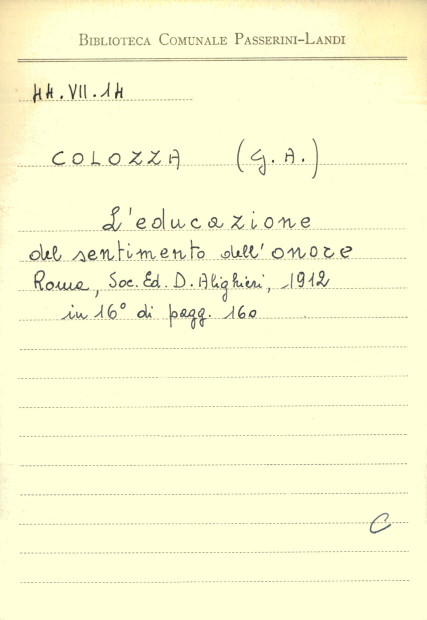 BIBLIOTECA COMUNALE PASSERINI-LANDI
44.VII.14
COLOZZA (G. A.)
L'educazione
del sentimento dell'onore
Roma, Soc. Ed. D. Alighieri, 1912
in 16° di pagg. 160
C